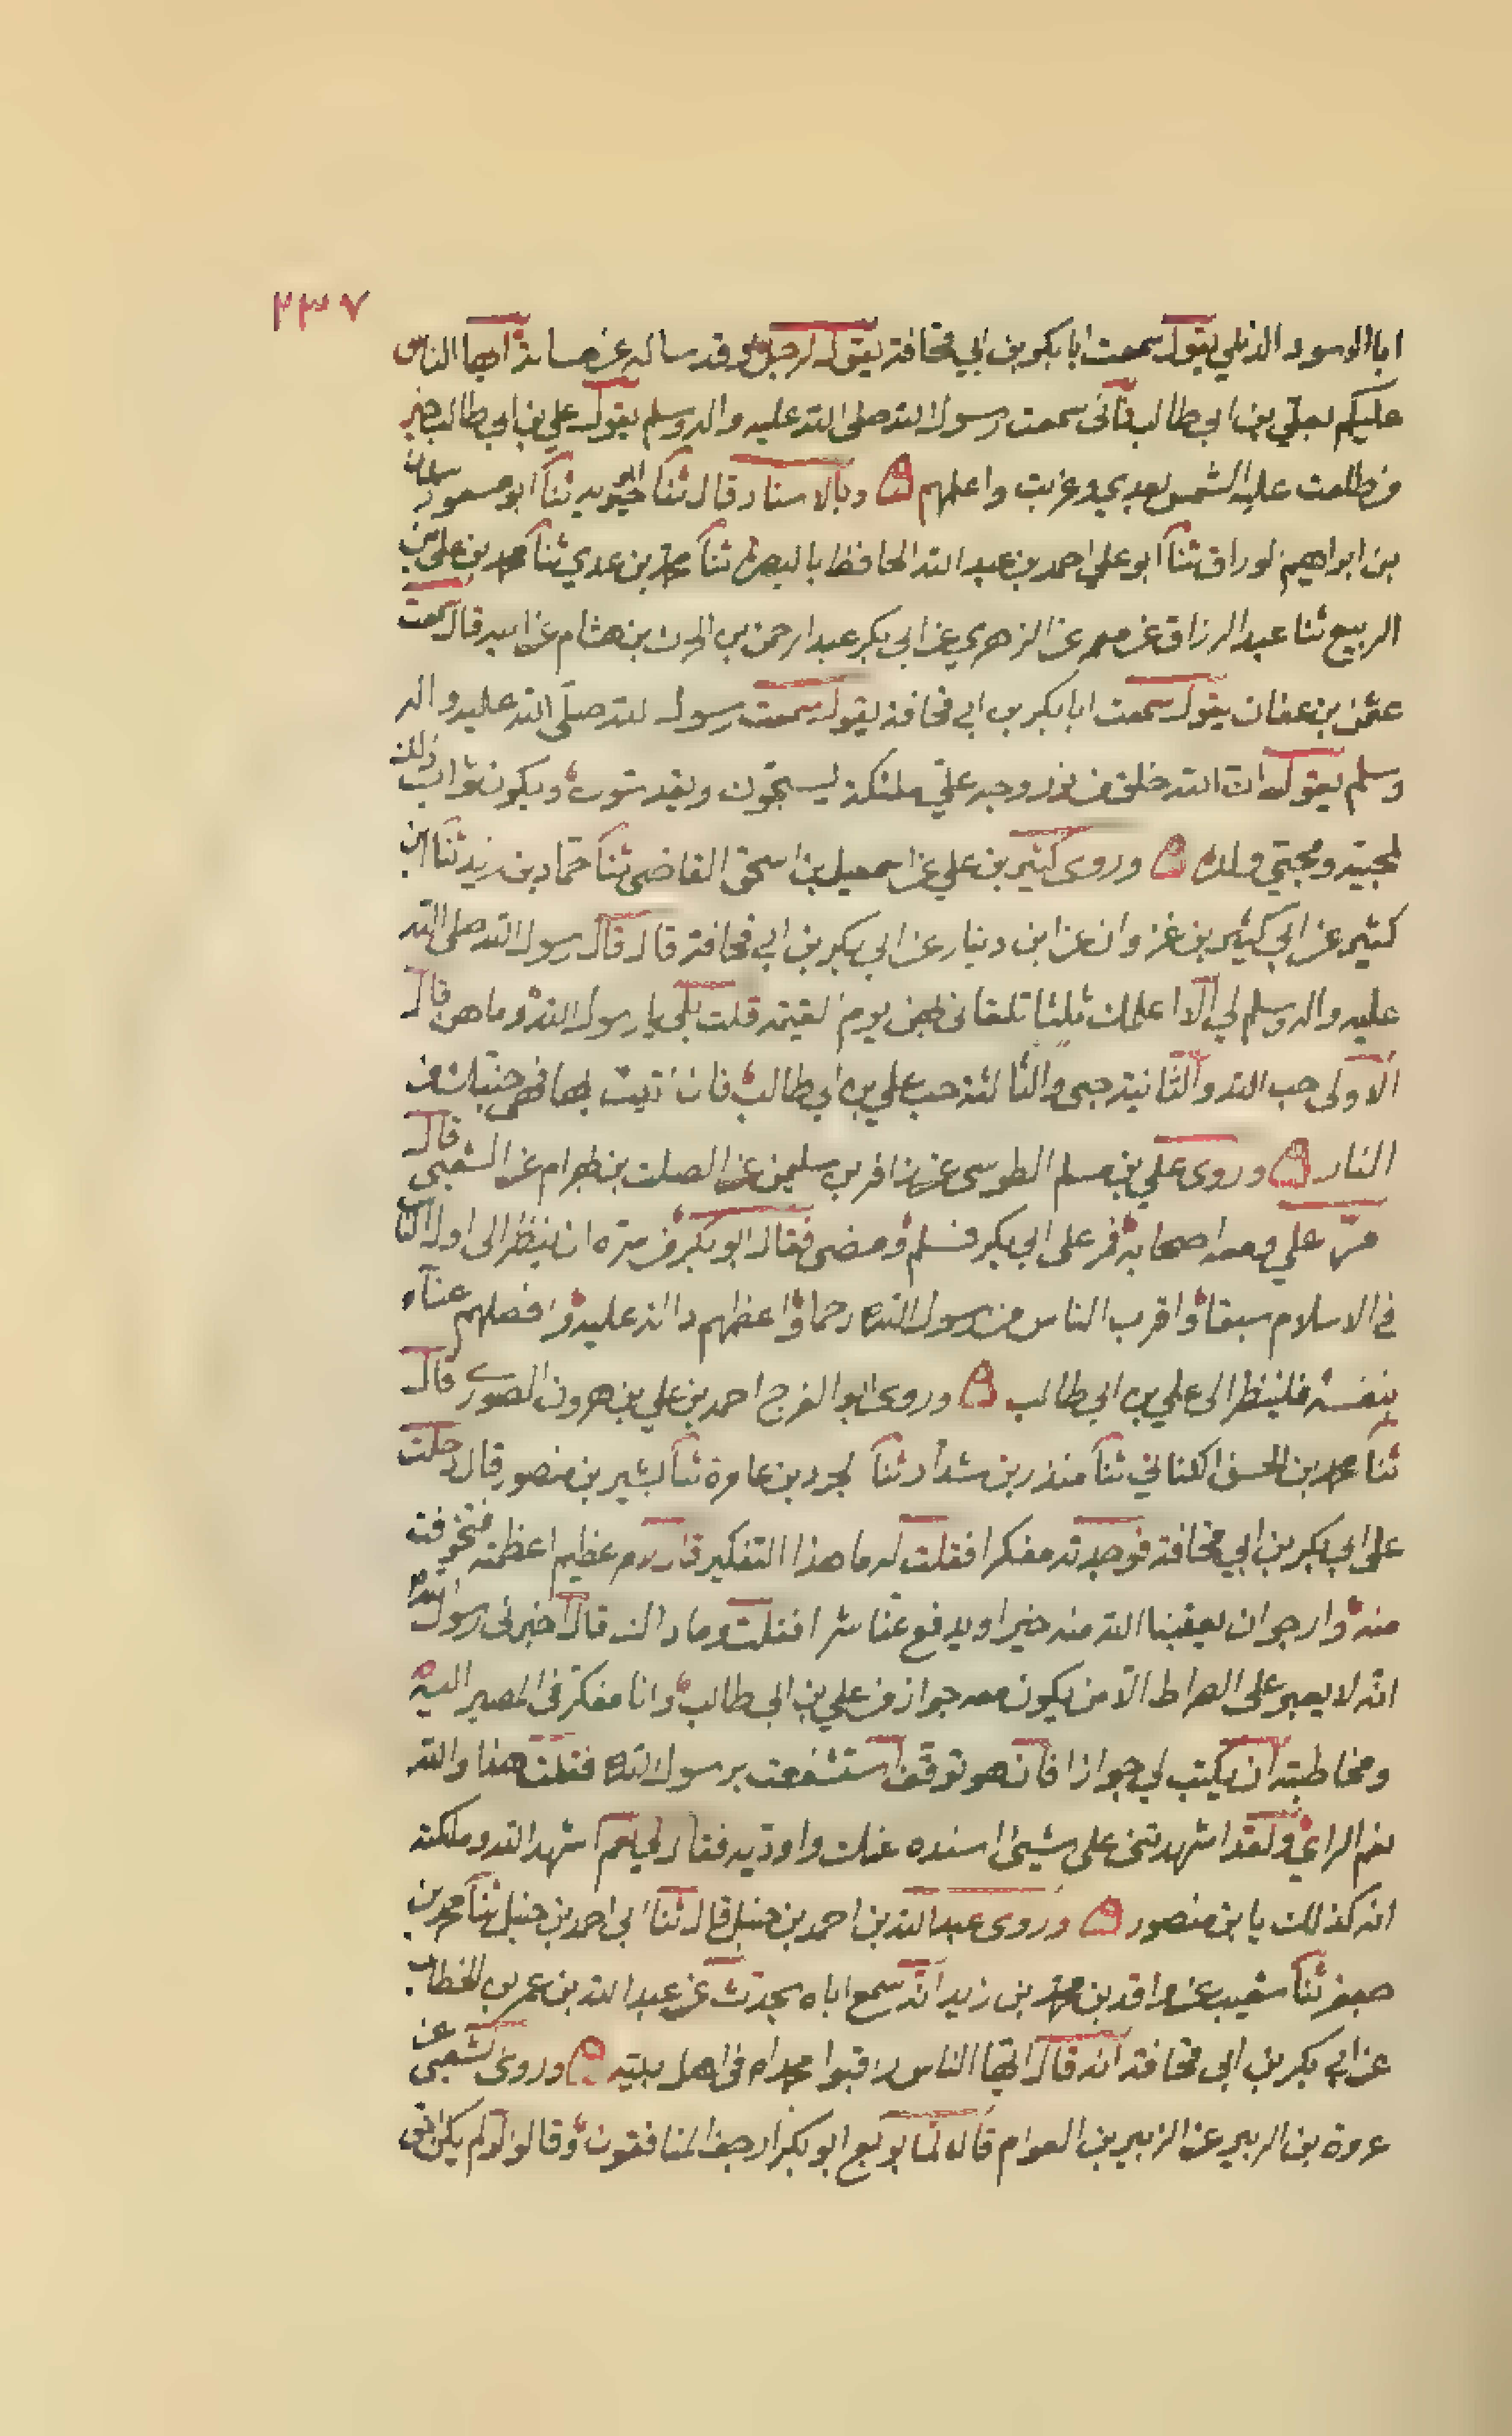 ٢٣٧
ابا الاسود الدئلي يقول سمعت ابا بكر بن ابي قحافة يقول لرجل وقد ساله عن ايها الناس
عليكم بعلي بن ابي طالب فاني سمعت رسول الله صلى الله عليه واله وسلم يقول علي بن ابي طالب خير
من طلعت عليه الشمس بعدي وغربت واعلمهم وبالاسناد قال ثنا ثنا ابو مسعود سليمان
بن ابراهيم لوراق ثنا ابو علي احمد بن عبد الله الحافظ بالبصرة ثنا محمد بن عدي ثنا محمد بن علي بن
الربيع ثنا عبد الرزاق عن معمر عن الزهري عن ابي بكر عبد الرحمن بن الحرث بن هشام عن ابيه قال سمعت
عثمن بن عفان يقول سمعت ابا بكر بن ابي قحافة يقول سمعت رسول الله صلى الله عليه واله
وسلم يقول ان الله خلق من نور وجه علي ملئكة يسبحون ويقدسون ويكون ثواب ذلك
لمحبيه ومحبي ولده وروى كثير بن علي عن اسمعيل بن اسحق القاضي ثنا حماد بن زيد ثنا ابن
كثير عن ابي كثير بن غزوان عن ابن دينار عن ابي بكر بن ابي قحافة قال قال رسول الله صلى الله
عليه واله وسلم لي الا اعلمك ثلثا تلقاني بهن يوم لقيمة قلت بلى يا رسول الله وما هن قال
الاولى حب الله والثانية حبي والثالثة حب علي بن ابي طالب فان اتيت بها فهي جنتك من
النار وروى علي بن مسلم الطوسي عن زافر بن سليمن عن الصلت بن بهرام عن الشعبي قال
مر علي ومعه اصحابه فمر على ابي بكر فسلم ومضى فقال ابو بكر من سره ان ينظر الى اول الناس
في الاسلام سبقا واقرب الناس من رسول الله رحما واعظمهم دالة عليه وافضلهم عناء
بنفسه فلينظر الى علي بن ابي طالب وروى ابو الفرج احمد بن علي بن هرون الصوري قال
ثنا محمد بن الحسن الكناني ثنا منذر بن شداد ثنا بن عامرة ثنا بشير بن منصور قال دخلت
على ابي بكر بن ابي قحافة فوجدته مفكرا فقلت له ما هذا التفكير قال لامر عظيم اعظمته فتخوفت
منه وارجو ان يعقبنا الله منه خيرا ويدفع عنا شرا فقلت وما ذاك قال اخبرني رسول الله
انه لا يعبر على الصراط الا من يكون معه جواز من علي بن ابي طالب وانا مفكر في المصير اليه
ومخاطبته ان يكتب لي جوازا فان هو توقف استشفعت برسول الله فقلت هذا والله
نعم الراي ولقد اشهدتني على شيئ اسنده عنك واوديه فقال لي نعم اشهد الله وملئكته
انه كذلك يا بن منصور وروى عبد الله بن احمد بن حنبل قال ثنا ابي احمد بن حنبل ثنا محمد بن
جعفر ثنا شعيب عن واقد بن محمد بن زيد انه سمع اباه يحدث عن عبد الله بن عمر بن الخطاب
عن ابي بكر بن ابي قحافة انه قال ايها الناس ارقبوا محمدا في اهل بيته وروى الشعبي عن
عروة بن الزبير عن الزبير بن العوام قال لما بويع ابو بكر ارجف المنافقون وقالوا لو لم يكن احق